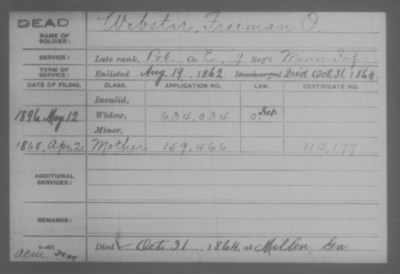 DEAD
NAME OF SOLDIER:
Webster, Freeman O.
SERVICE:
Late rank, Pvt. Co. E, 9 Reg't Minn Inf.
TERM OF SERVICE:
Enlisted Aug. 19, 1862 Discharged Died Oct. 31, 1864
DATE OF FILING. CLASS. APPLICATION NO. LAW. CERTIFICATE NO.
Invalid,
1896 May 12 Widow, 634,034
Minor,
1868, Apr. 2 Mother 159,466 114,177
ADDITIONAL SERVICES:
REMARKS:
Died Oct. 31, 1864, at Millen, Ga.